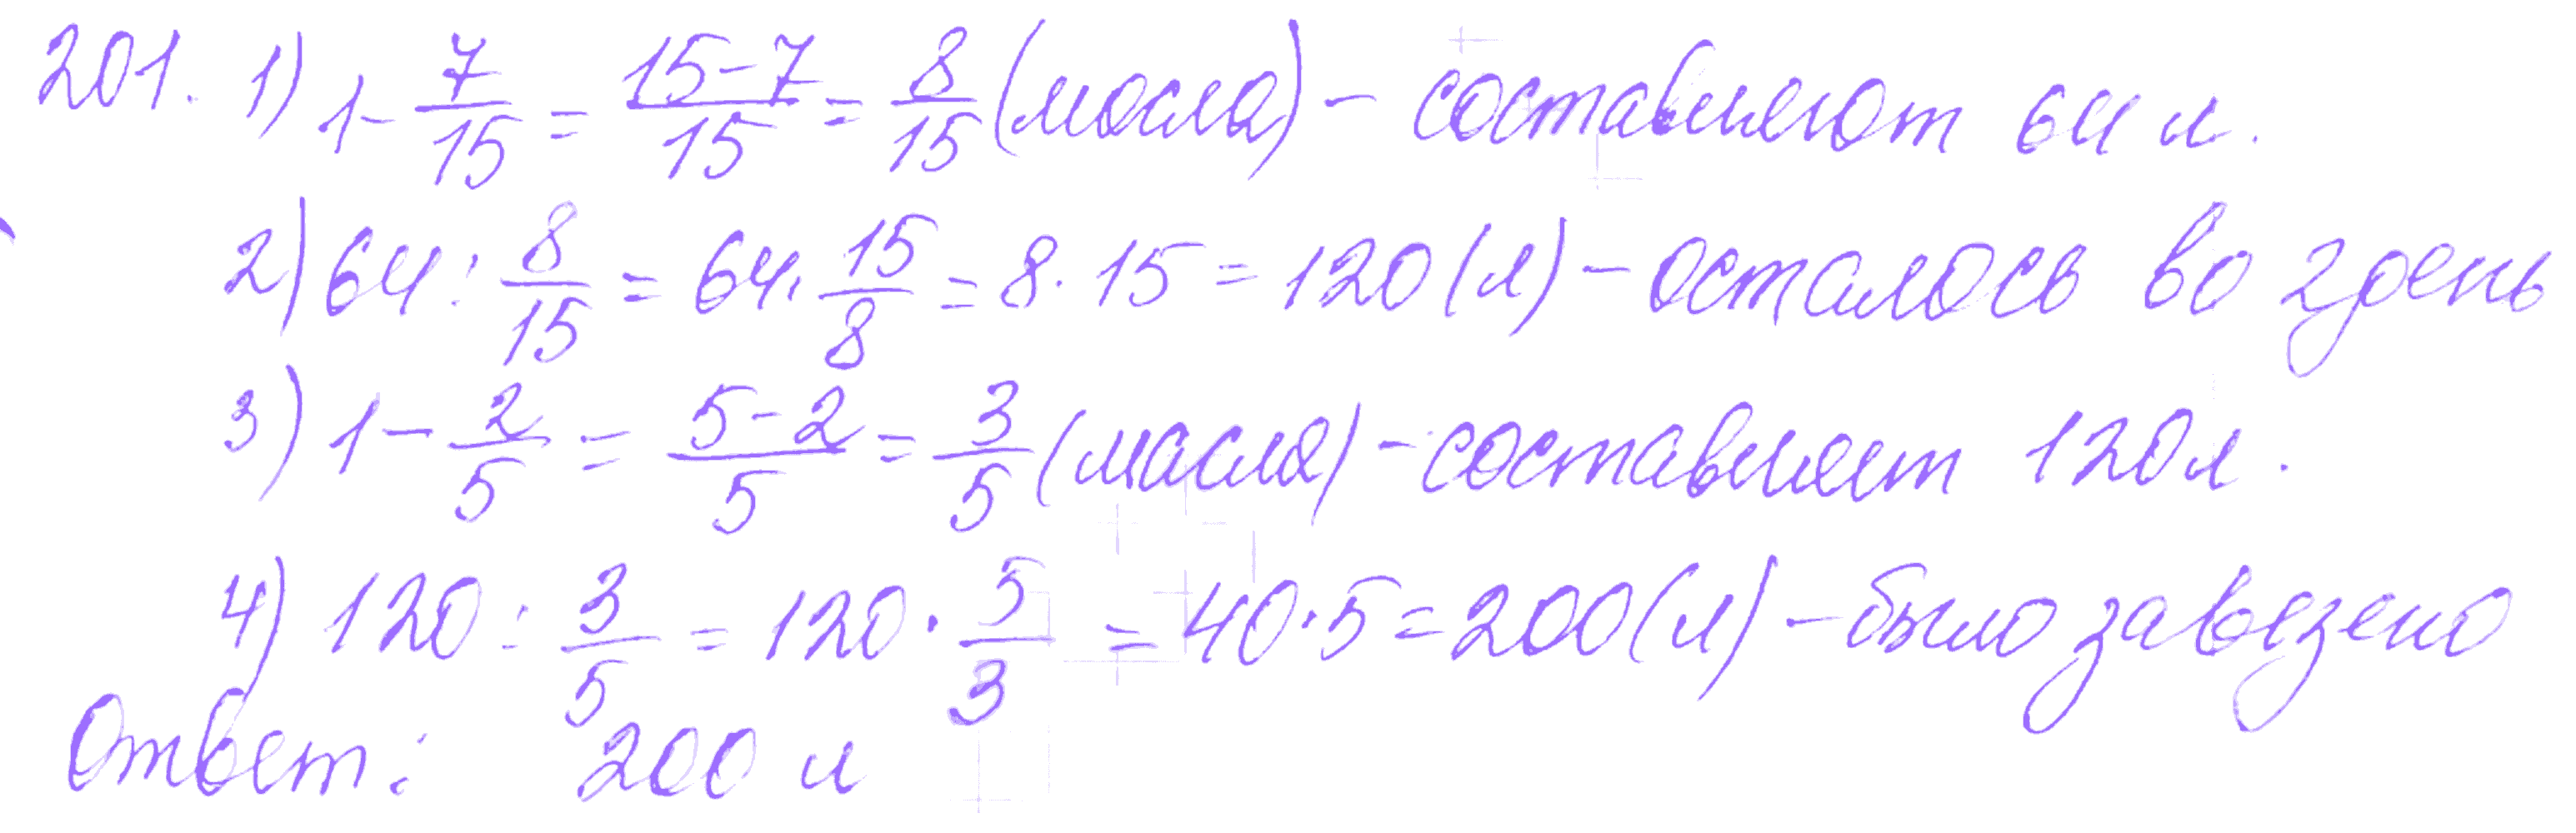 201. 1) 1 - 7/15 = (15-7)/15 = 8/15 (масла) - составляют 64 л.
2) 64 : 8/15 = 64 · 15/8 = 8 · 15 = 120 (л) - осталось во 2 день
3) 1 - 2/5 = (5-2)/5 = 3/5 (масла) - составляет 120 л.
4) 120 : 3/5 = 120 · 5/3 = 40 · 5 = 200 (л) - было завезено
Ответ: 200 л